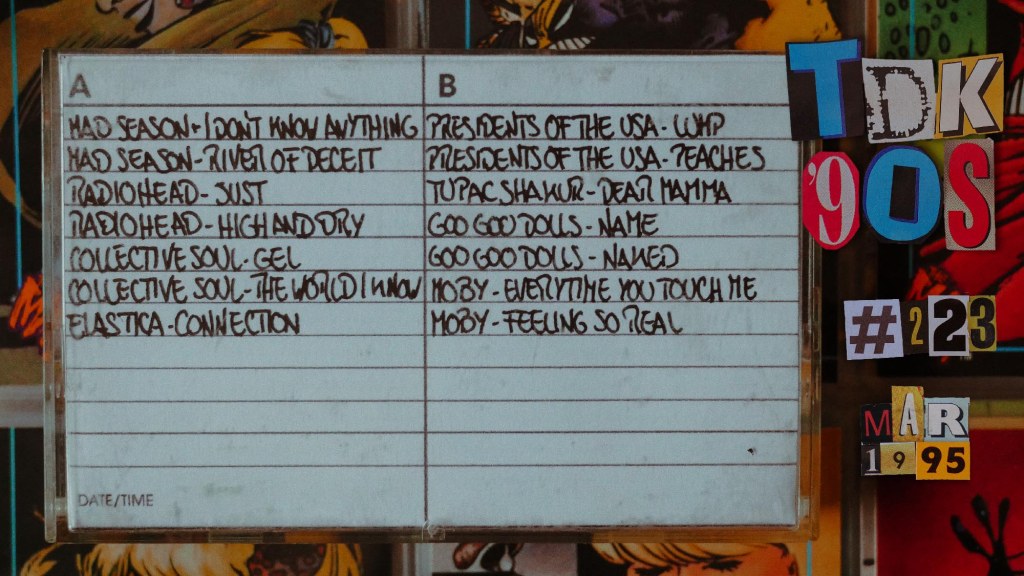 A
MAD SEASON - I DON'T KNOW ANYTHING
MAD SEASON - RIVER OF DECEIT
RADIOHEAD - JUST
RADIOHEAD - HIGH AND DRY
COLLECTIVE SOUL - GEL
COLLECTIVE SOUL - THE WORLD I KNOW
ELASTICA - CONNECTION
DATE/TIME
B
PRESIDENTS OF THE USA - LUMP
PRESIDENTS OF THE USA - PEACHES
TUPAC SHAKUR - DEAR MAMMA
GOO GOO DOLLS - NAME
GOO GOO DOLLS - NAKED
MOBY - EVERYTIME YOU TOUCH ME
MOBY - FEELING SO REAL
TDK
'90S
#223
MAR
1995